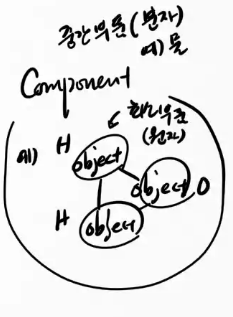 중간부품(분자)
예) 물
Component
하위부품
(원자)
예) H object
object O
H object